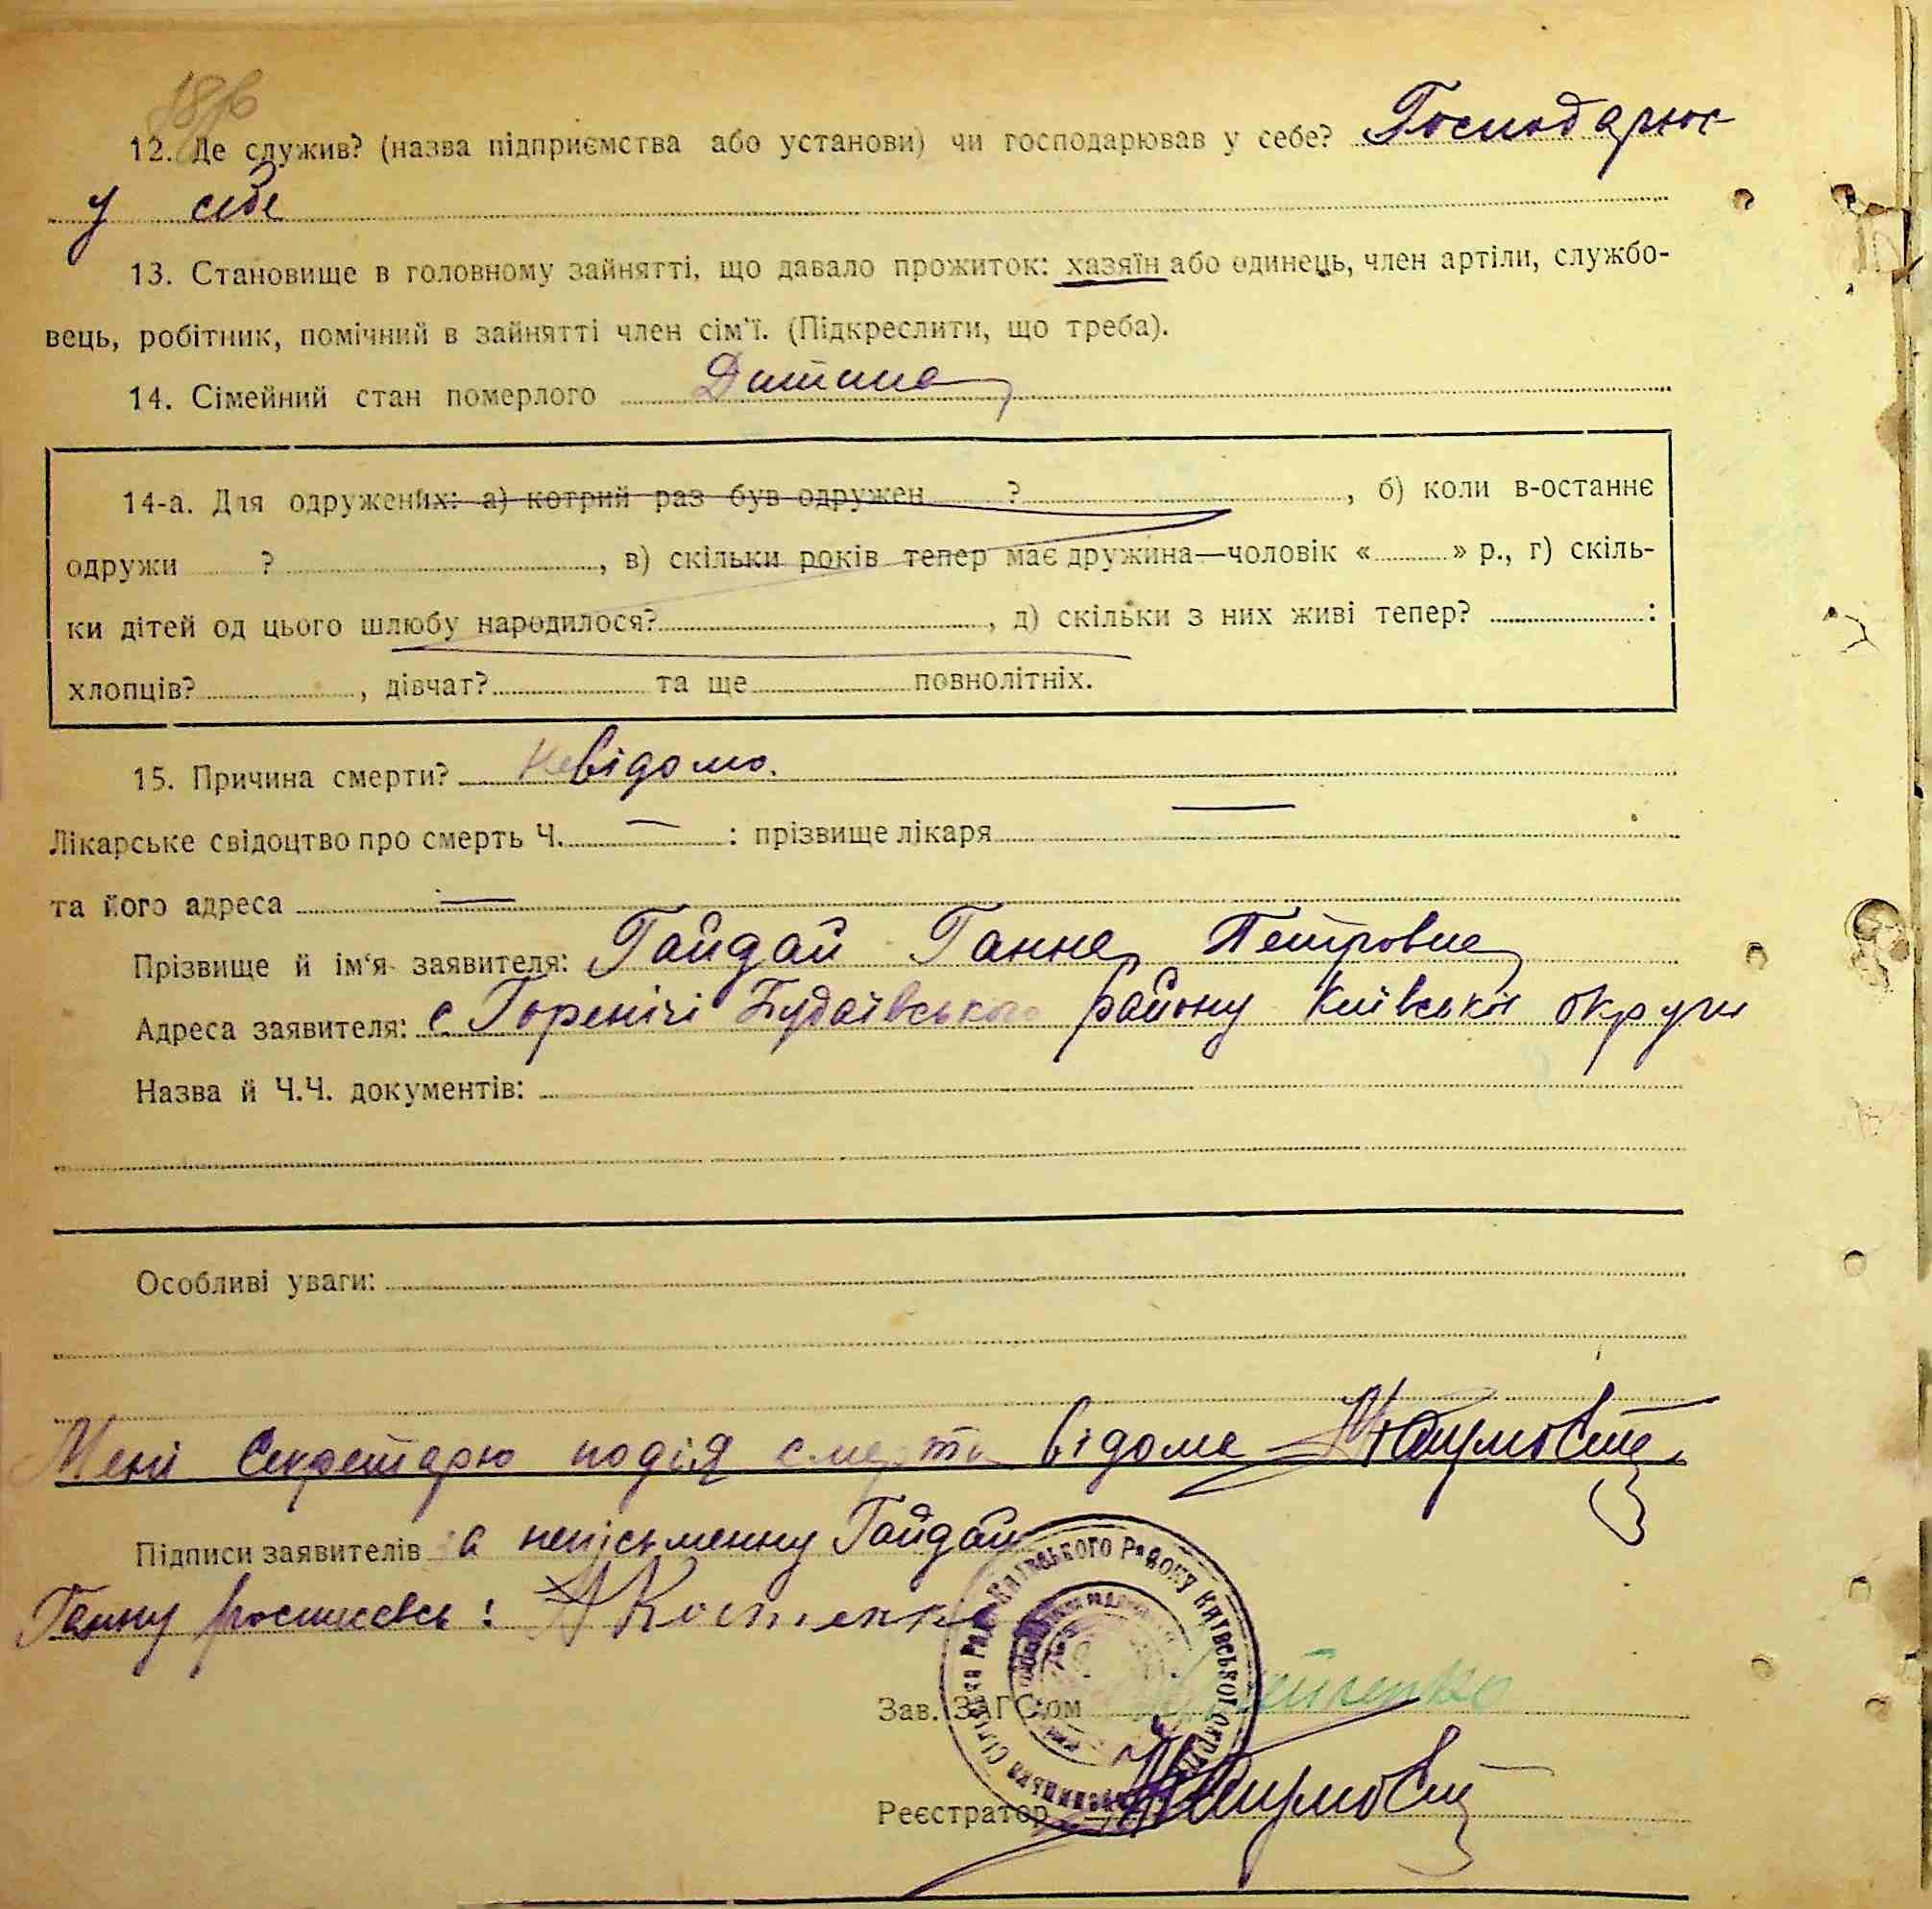 12. Де служив? (назва підприємства або установи) чи господарював у себе? Господарює
у себе
13. Становище в головному зайнятті, що давало прожиток: хазяїн або одинець, член артіли, службо-
вець, робітник, помічний в зайнятті член сім'ї. (Підкреслити, що треба).
14. Сімейний стан померлого Дитина
14-а. Для одружених: а) котрий раз був одружен ? , б) коли в-останнє
одружи ? , в) скільки років тепер має дружина—чоловік « » р., г) скіль-
ки дітей од цього шлюбу народилося? , д) скільки з них живі тепер? :
хлопців? , дівчат? та ще повнолітніх.
15. Причина смерти? Невідомо.
Лікарське свідоцтво про смерть Ч. — : прізвище лікаря —
та його адреса —
Прізвище й ім'я заявителя: Гайдай Ганна Петровна
Адреса заявителя: с Горенічі Будаївського району Київської округи
Назва й Ч.Ч. документів:
Особливі уваги:
Мені Секретарю подія смерти відома
Підписи заявителів за неписьменну Гайдай
Ганну росписавсь: А Костенко
Зав. ЗАГС'ом
Реєстратор